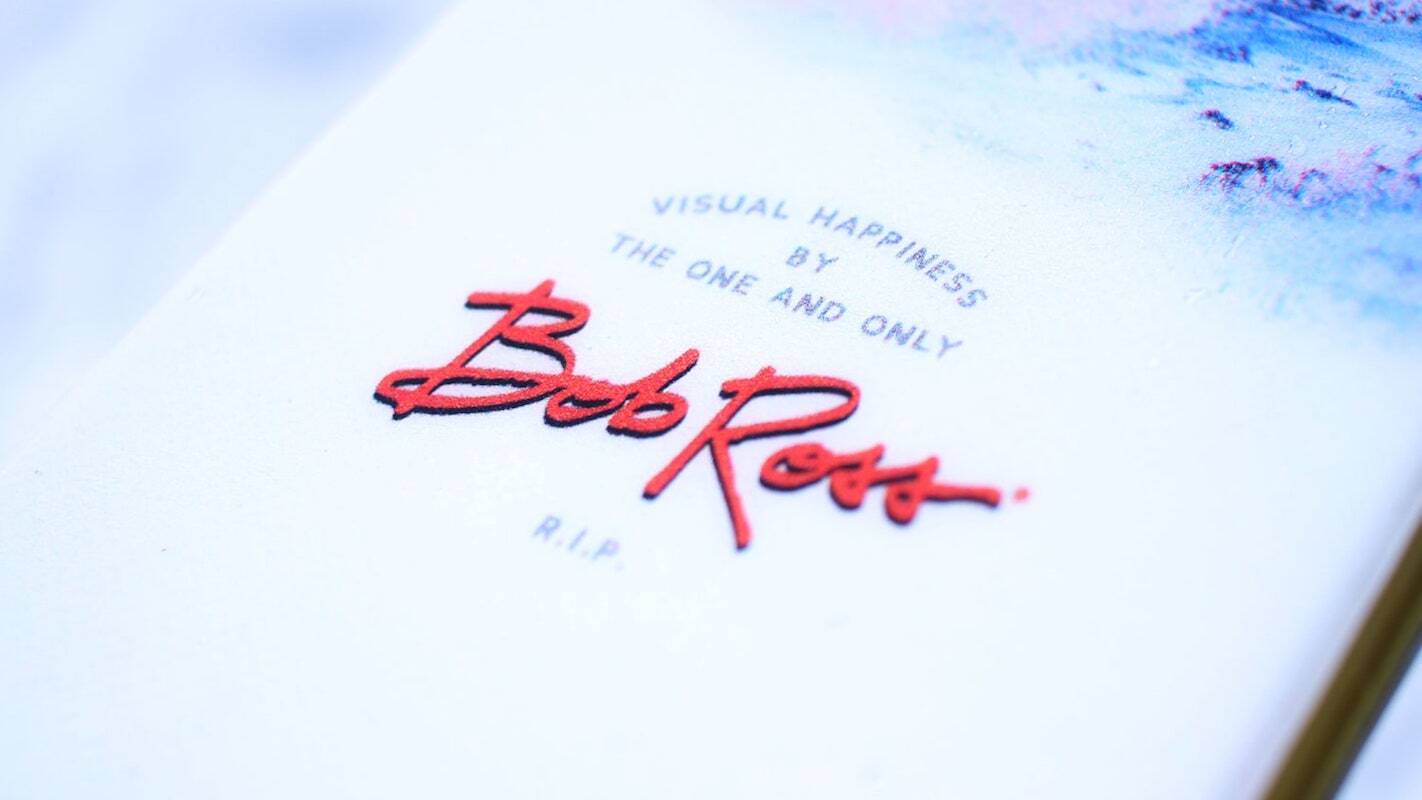 VISUAL HAPPINESS
BY
THE ONE AND ONLY
Bob Ross.
R.I.P.